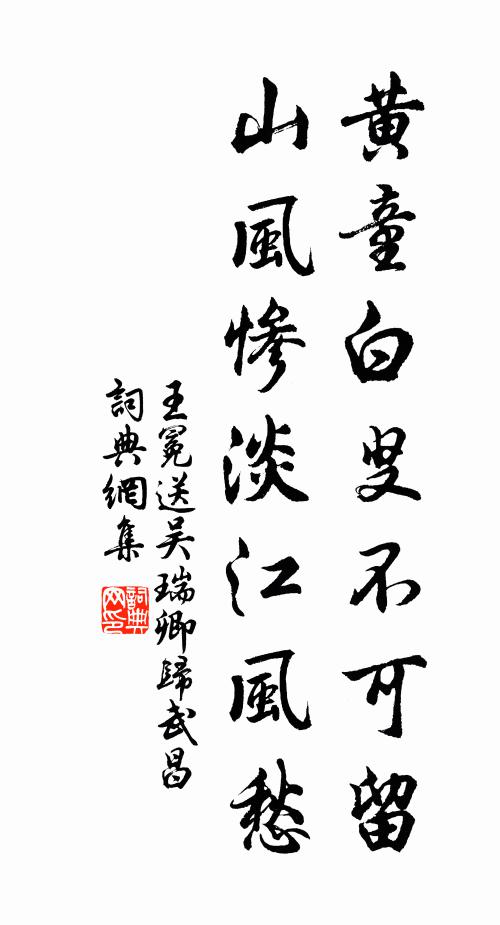 黄童白叟不可留
山風慘淡江風愁
王冕送吴瑞卿歸武昌
詞典網集
詞典
网印